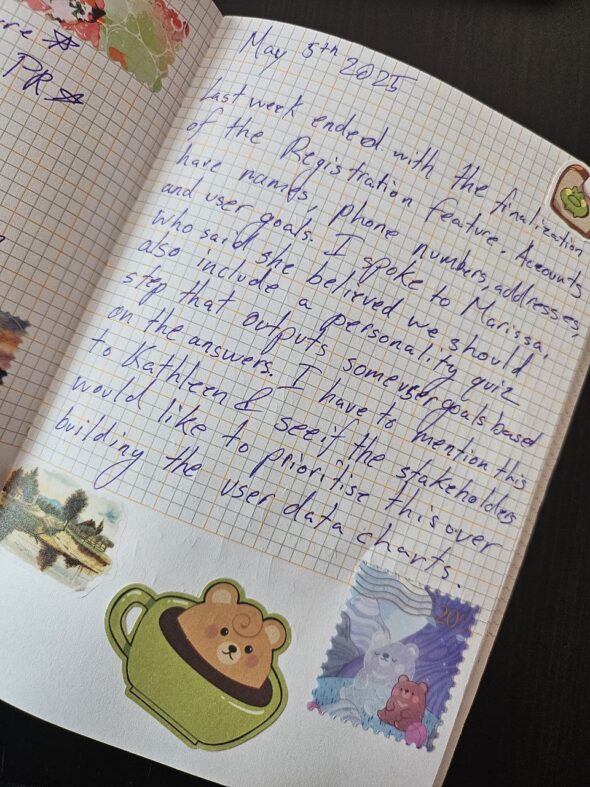 re ☆
PR ☆
May 5th 2025
Last week ended with the finalization
of the Registration feature. Accounts
have names, phone numbers, addresses,
and user goals. I spoke to Marissa,
who said she believed we should
also include a personality quiz
step that outputs some user goals based
on the answers. I have to mention this
to Kathleen & see if the stakeholders
would like to prioritise this over
building the user data charts.
20